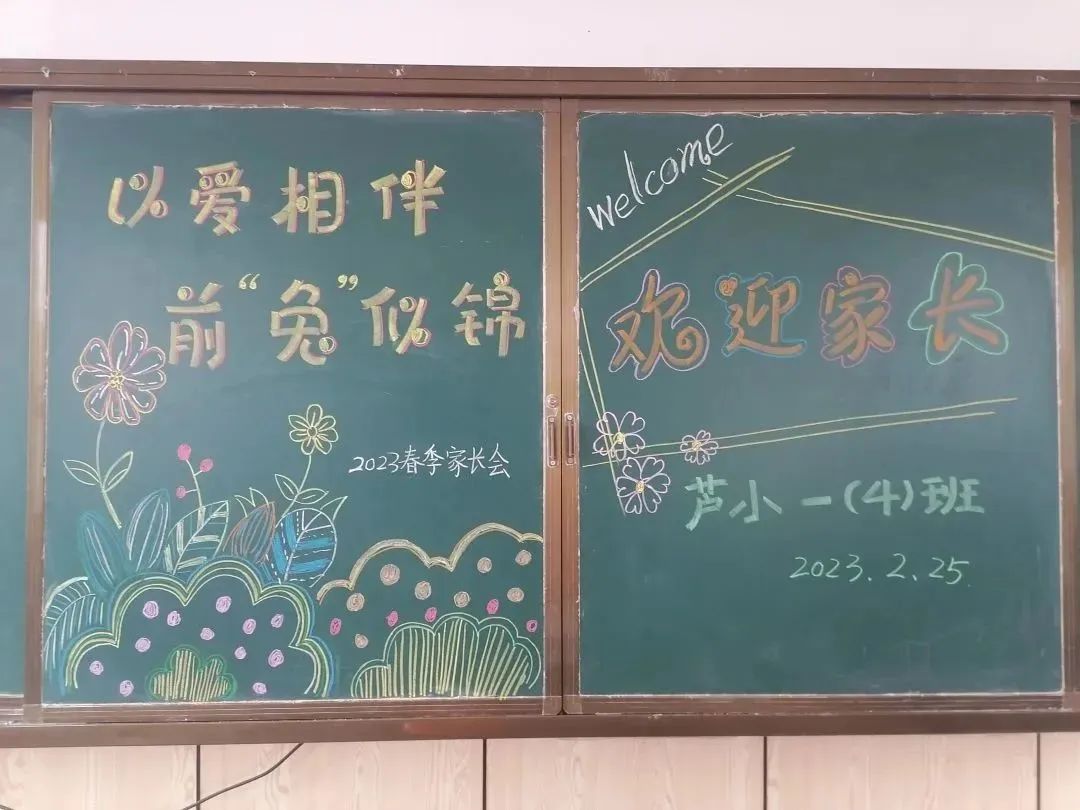 以爱相伴
前“兔”似锦
2023春季家长会
welcome
欢迎家长
芦小一(4)班
2023.2.25.